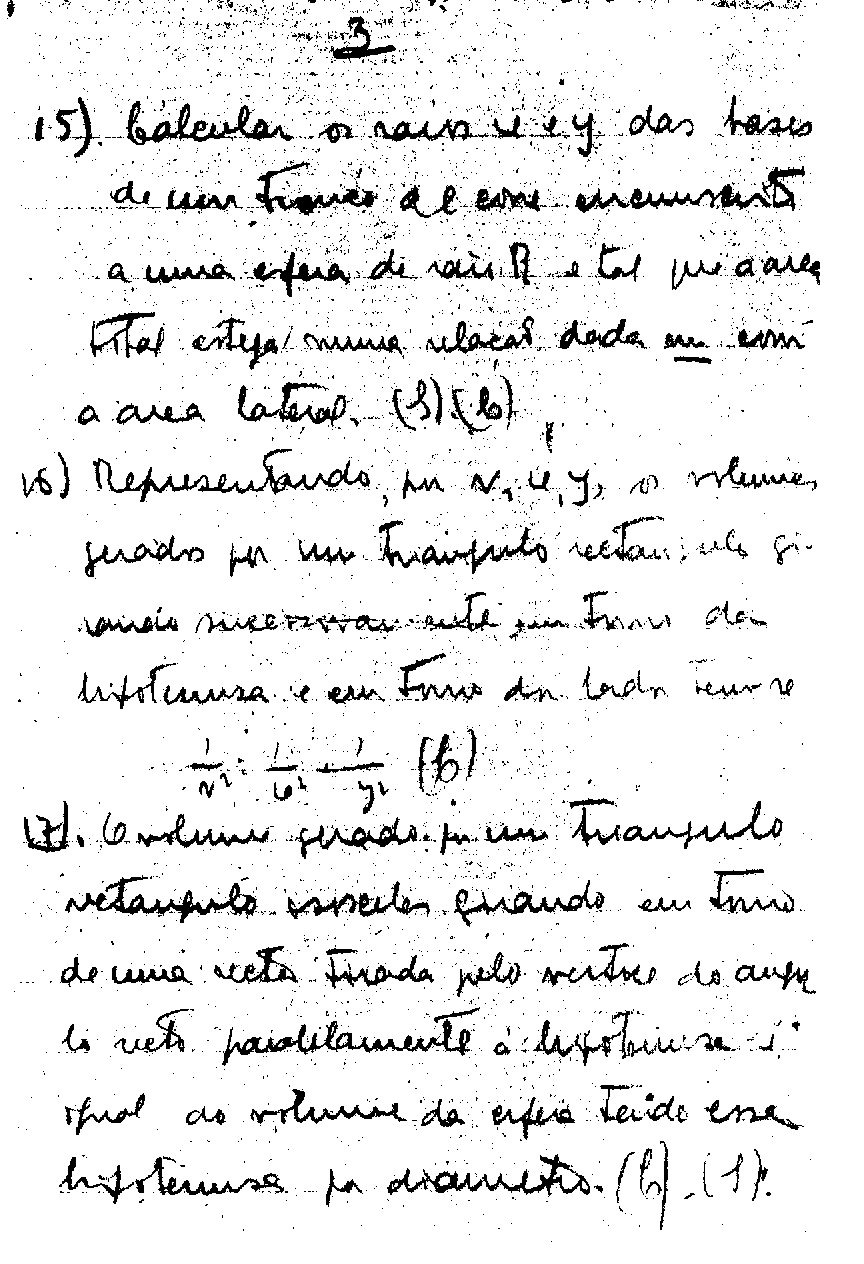 3
15). Calcular os raios x e y das bases
de um tronco de cone circunscrito
a uma esfera de raio R e tal que a area
total esteja numa relação dada m com
a area lateral. (S).(b)
16) Representando, por v, x, y, os volumes
gerados por um triangulo rectangulo gi-
rando successivamente em torno da
hipotenusa e em torno dos lados tem-se
1/v² = 1/x² + 1/y² (b)
17). O volume gerado por um triangulo
rectangulo isosceles girando em torno
de uma recta tirada pelo vertice do angu
lo recto parallelamente á hipotenusa é
igual ao volume da esfera tendo essa
hipotenusa por diametro. (b). (S).